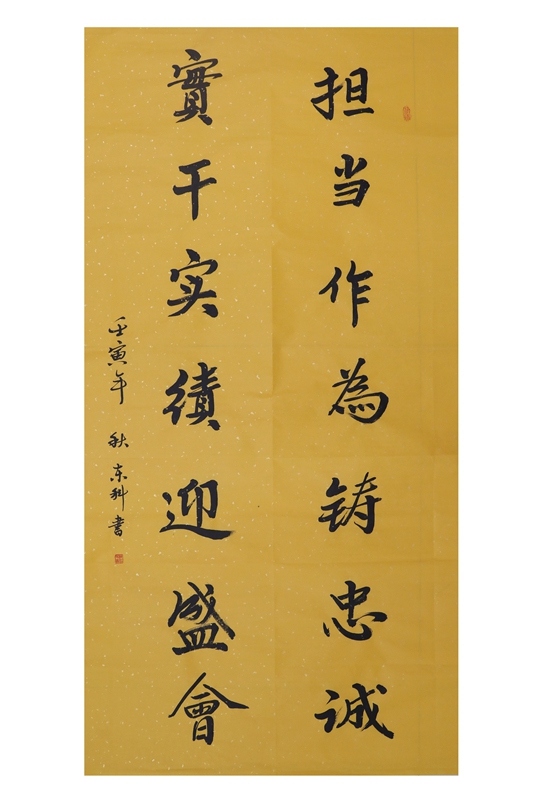 担当作為铸忠诚
實干实績迎盛會
壬寅年 秋 东科書